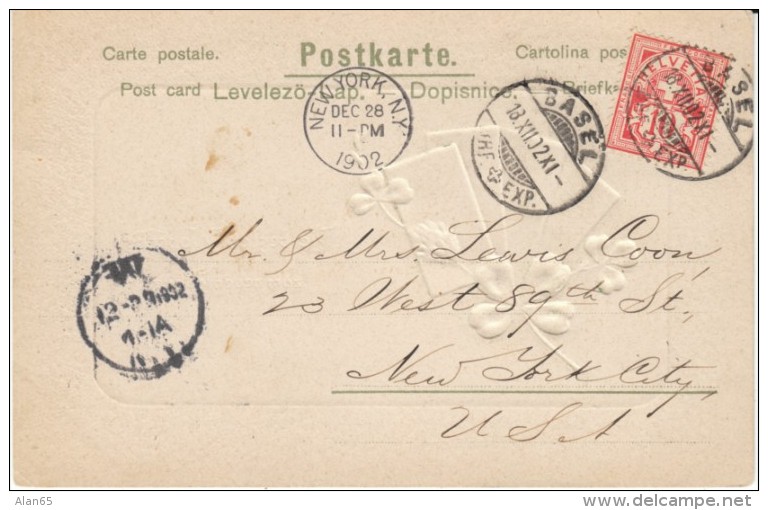 Carte postale. Postkarte. Cartolina pos
Post card Levelező-Lap. Dopisnice. Briefk
NEW YORK, N.Y.
DEC 28
11-PM
1902
BASEL
18.XII.02.XI-
BRF. EXP.
HELVETIA
BASEL
18.XII.02.XI-
EXP.
W
12-29 1902
1-1A
N.Y.
Mr. & Mrs. Lewis Coon,
23 West 89th St.,
New York City,
U S A
Alan65
www.delcampe.net